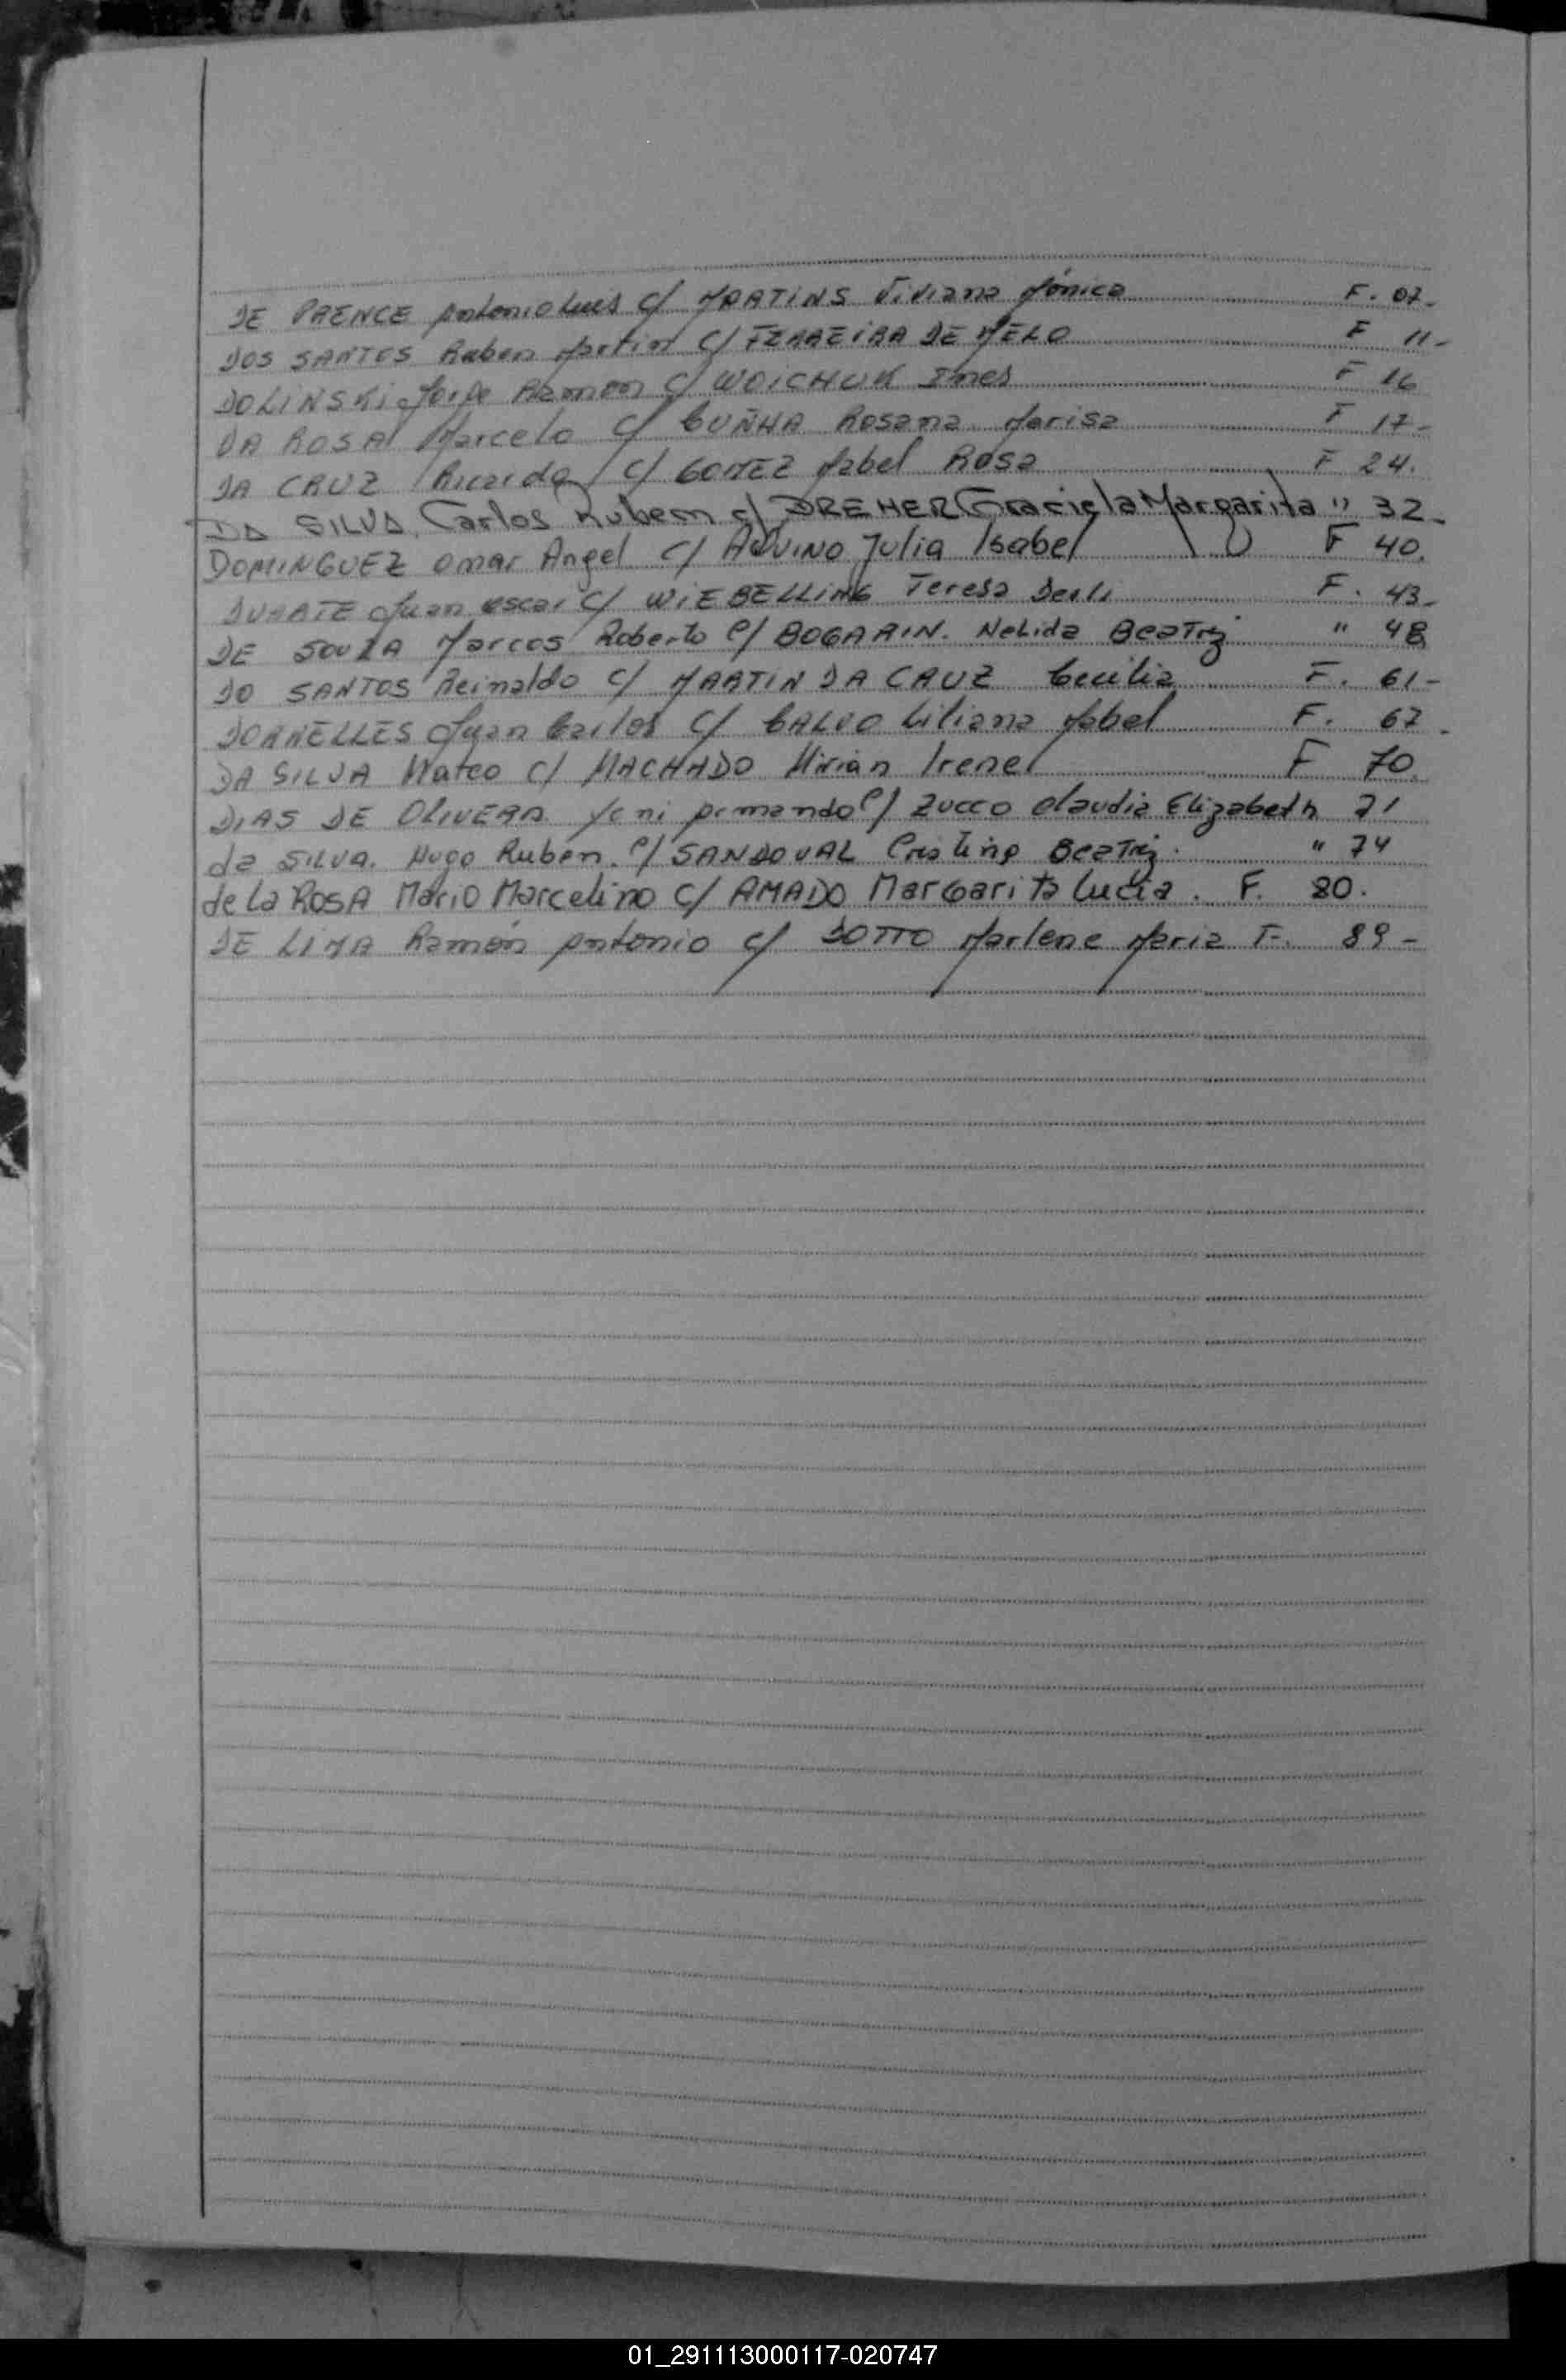 DE PRENCE Antonio Luis c/ MARTINS Viviana Mónica F. 07-
DOS SANTOS Ruben Martin c/ FERREIRA DE MELO F 11-
DOLINSKI Jorge Ramon c/ WOICHUK Ines F 16
DA ROSA Marcelo c/ CUÑHA Rosana Marisa F 17-
DA CRUZ Ricardo c/ GOMEZ Mabel Rosa F 24.
DA SILVA, Carlos Rubem c/ DREHER Graciela Margarita " 32-
DOMINGUEZ Omar Angel c/ AQUINO Julia Isabel F 40.
DUARTE Juan Oscar c/ WIEBELLING Teresa F. 43-
DE SOUZA Marcos Roberto c/ BOGARIN. Nelida Beatriz " 48
DO SANTOS Reinaldo c/ MARTIN DA CRUZ Cecilia F. 61-
DORNELLES Juan Carlos c/ CALVO Liliana Mabel F. 67-
DA SILVA Mateo c/ MACHADO Mirian Irene F 70.
DIAS DE OLIVERA Armando c/ ZUCCO Claudia Elizabeth 71
da SILVA. Hugo Rubén. c/ SANDOVAL Cristina Beatriz. " 74
de la ROSA Mario Marcelino c/ AMADO Margarita Lucia. F. 80.
DE LIMA Ramón Antonio c/ DOTTO Marlene Maria F. 89-
01_291113000117-020747